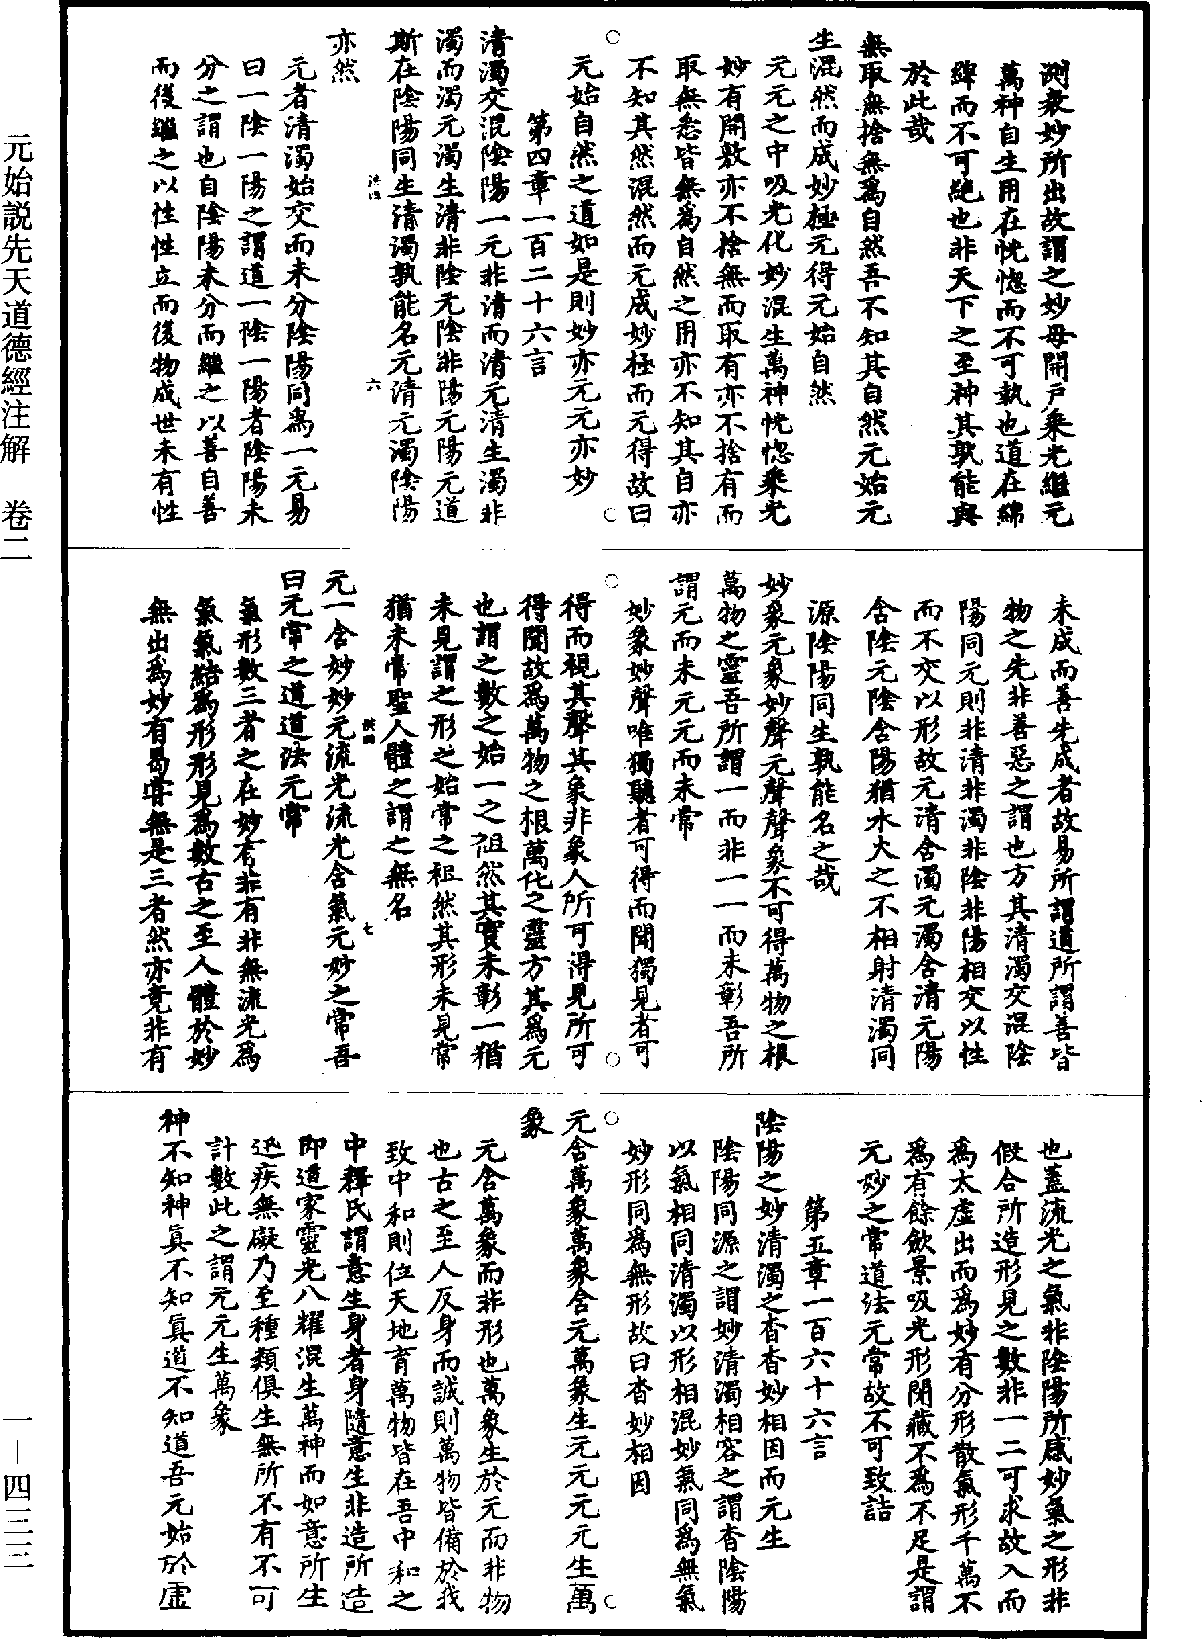 測衆妙所出故謂之妙母開戶乗光繼元
萬神自生用在恍惚而不可執也道在綿
綿而不可絶也非天下之至神其孰能與
於此哉
無取無捨無爲自然吾不知其自然元始元
生混然而成妙極元得元始自然
元元之中吸光化妙混生萬神恍惚乗光
妙有開敷亦不捨無而取有亦不捨有而
取無悉皆無爲自然之用亦不知其自亦
不知其然混然而元成妙極而元得故曰
元始自然之道如是則妙亦元元亦妙
第四章一百二十六言
清濁交混陰陽一元非清而清元清生濁非
濁而濁元濁生清非陰元陰非陽元陽元道
斯在陰陽同生清濁孰能名元清元濁陰陽
亦然
元者清濁始交而未分陰陽同爲一元易
曰一陰一陽之謂道一陰一陽者陰陽未
分之謂也自陰陽未分而繼之以善自善
而後繼之以性性立而後物成世未有性
六
未成而善先成者故易所謂道所謂善皆
物之先非善惡之謂也方其清濁交混陰
陽同元則非清非濁非陰非陽相交以性
而不交以形故元清含濁元濁含清元陽
含陰元陰含陽猶水火之不相射清濁同
源陰陽同生孰能名之哉
妙象元象妙聲元聲聲象不可得萬物之根
萬物之靈吾所謂一而非一一而未彰吾所
謂元而未元元而未常
妙象妙聲唯獨聽者可得而聞獨見者可
得而視其聲其象非象人所可得見所可
得聞故爲萬物之根萬化之靈方其爲元
也謂之數之始一之祖然其實未彰一猶
未見謂之形之始常之祖然其形未見常
猶未常聖人體之謂之無名
元一含妙妙元流光流光含氣元妙之常吾
曰元常之道道法元常
氣形數三者之在妙有非有非無流光爲
氣氣結爲形形見爲數古之至人體於妙
無出爲妙有曷甞無是三者然亦竟非有
七
也蓋流光之氣非陰陽所感妙氣之形非
假合所造形見之數非一二可求故入而
爲太虛出而爲妙有分形散氣形千萬不
爲有餘歛景吸光形閉藏不爲不足是謂
元妙之常道法元常故不可致詰
第五章一百六十六言
陰陽之妙清濁之杳杳妙相因而元生
陰陽同源之謂妙清濁相容之謂杳陰陽
以氣相同清濁以形相混妙氣同爲無氣
妙形同為無形故曰杳妙相因
元含萬象萬象含元萬象生元元元生萬
象
元含萬象而非形也萬象生於元而非物
也古之至人反身而誠則萬物皆備於我
致中和則位天地育萬物皆在吾中和之
中釋氏謂意生身者身隨意生非造所造
即道家靈光八耀混生萬神而如意所生
迅疾無礙乃至種類俱生無所不有不可
計數此之謂元元生萬象
神不知神真不知真道不知道吾元始於虛
元始説先天道德經注解　卷二
一—四三三